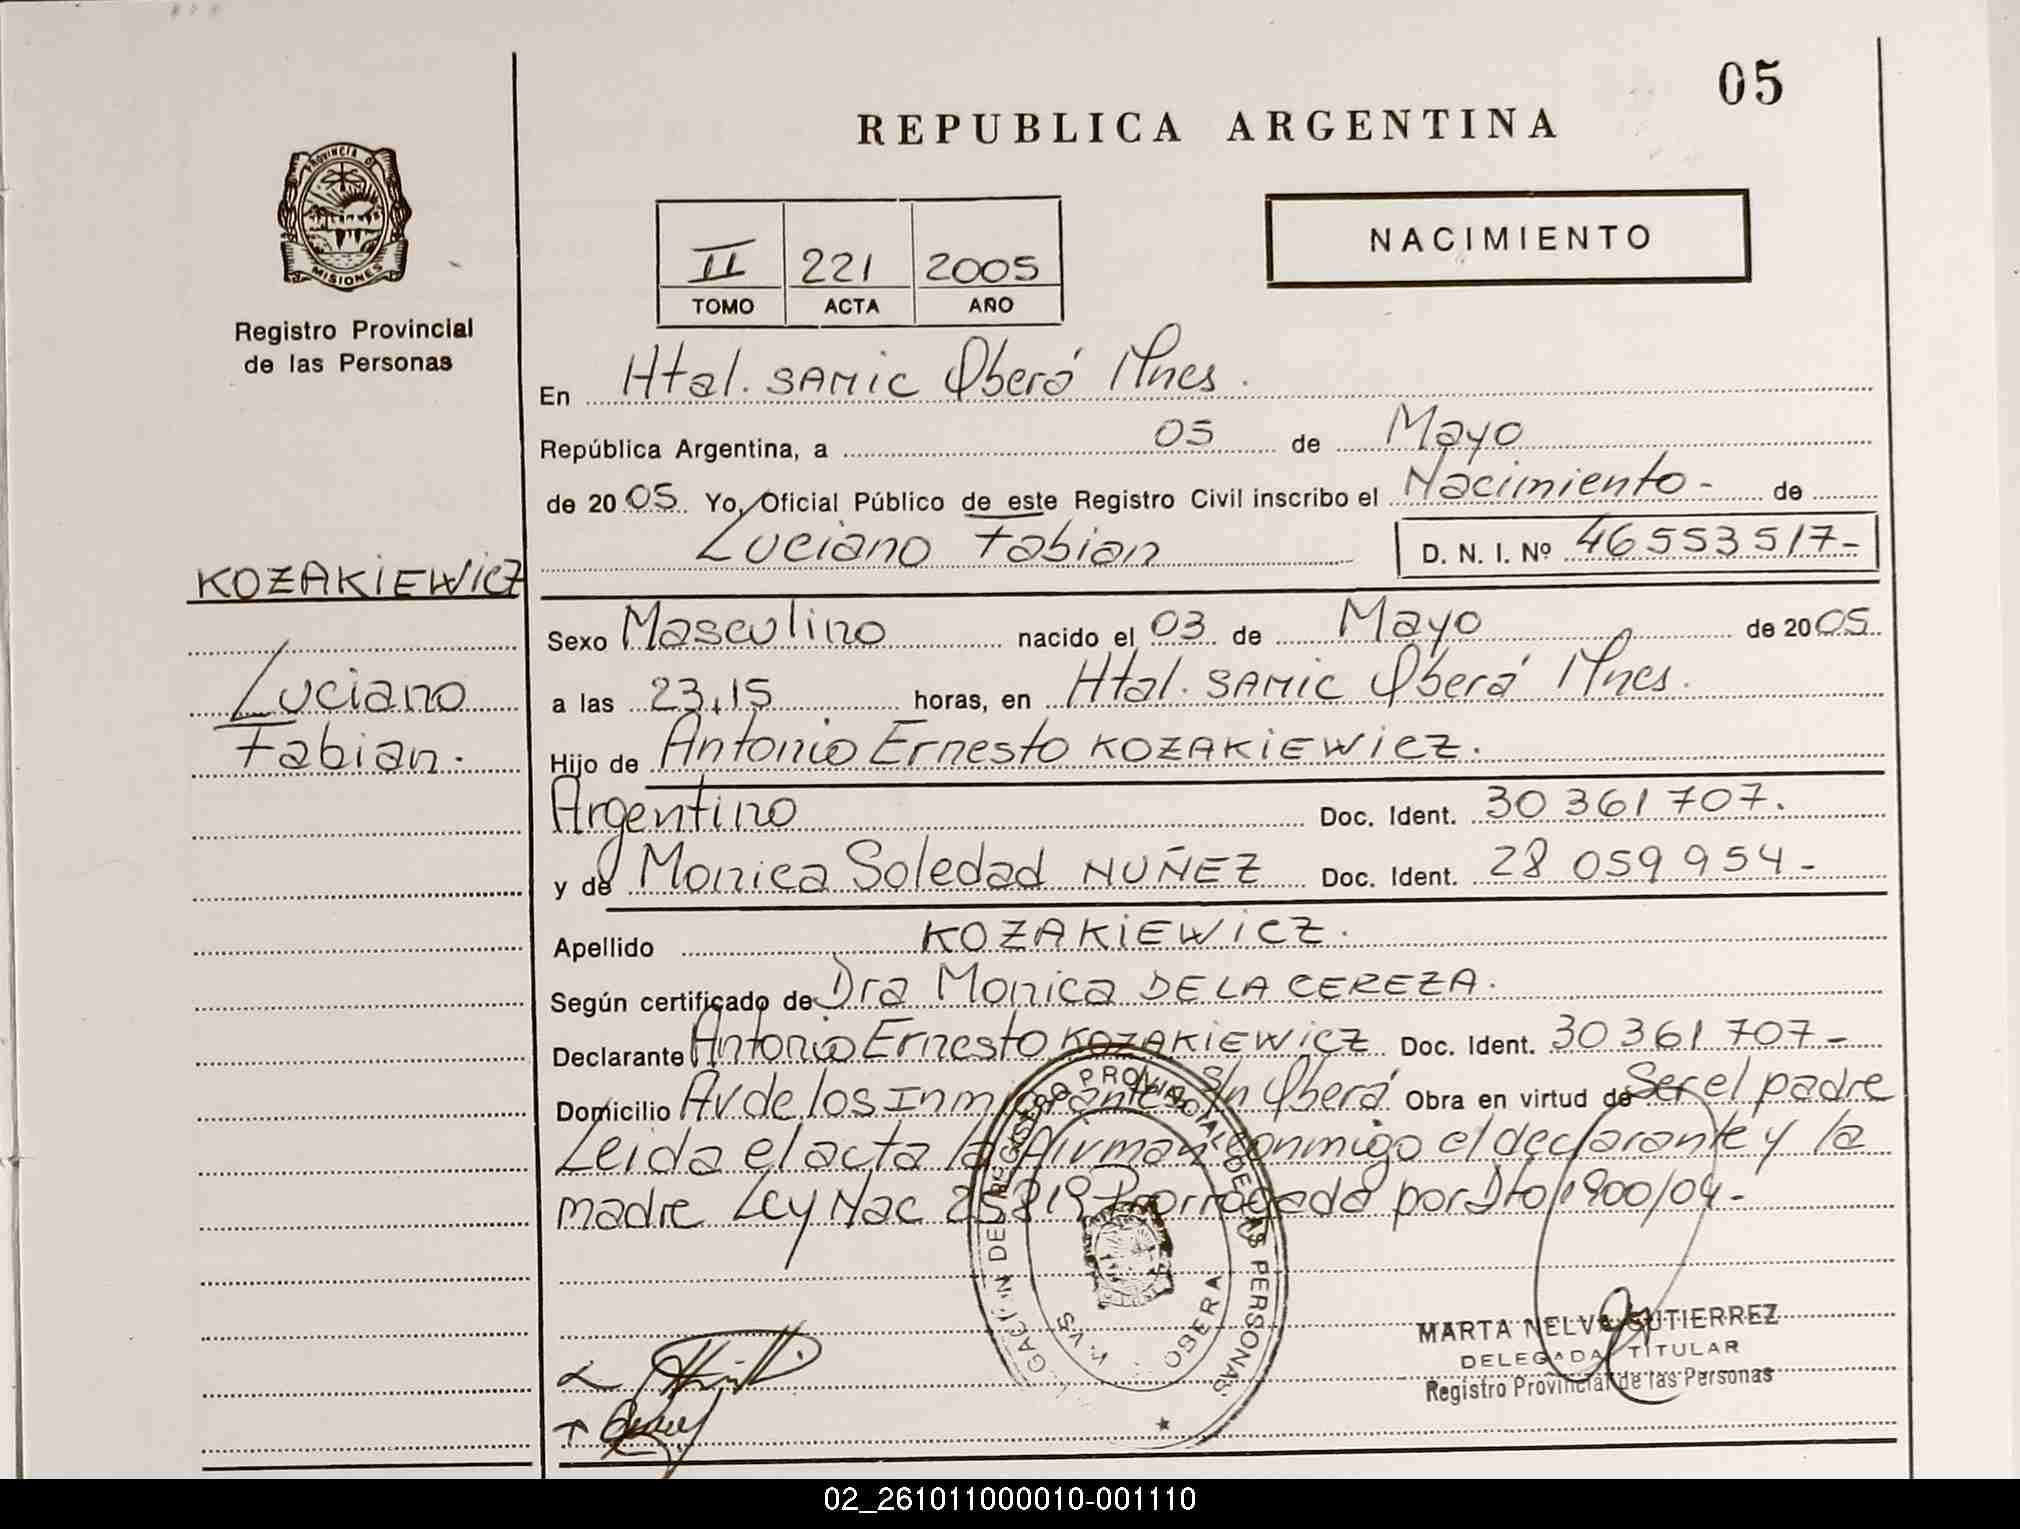 05
REPUBLICA ARGENTINA
PROVINCIA DE
MISIONES
Registro Provincial
de las Personas
II 221 2005
TOMO ACTA AÑO
NACIMIENTO
En Htal. SAMIC Oberá Mnes.
República Argentina, a 05 de Mayo
de 2005 Yo, Oficial Público de este Registro Civil inscribo el Nacimiento - de
Luciano Fabian D. N. I. Nº 46553517-
KOZAKIEWICZ
Luciano
Fabian.
Sexo Masculino nacido el 03 de Mayo de 2005
a las 23,15 horas, en Htal. SAMIC Oberá Mnes.
Hijo de Antonio Ernesto KOZAKIEWICZ.
Argentino Doc. Ident. 30 361 707.
y de Monica Soledad NUÑEZ Doc. Ident. 28 059 954-
Apellido KOZAKIEWICZ.
Según certificado de Dra Monica DE LA CEREZA.
Declarante Antonio Ernesto KOZAKIEWICZ Doc. Ident. 30 361 707-
Domicilio Av de los Inmigrantes S/n Oberá Obra en virtud de Ser el padre
Leida el acta la firman conmigo el declarante y la
madre Ley Nac 25819 Prorrogada por Dto 1900/04-
REGISTRO PROVINCIAL DE LAS PERSONAS
OBERA
MARTA NELVA GUTIERREZ
DELEGADA TITULAR
Registro Provincial de las Personas
02_261011000010-001110